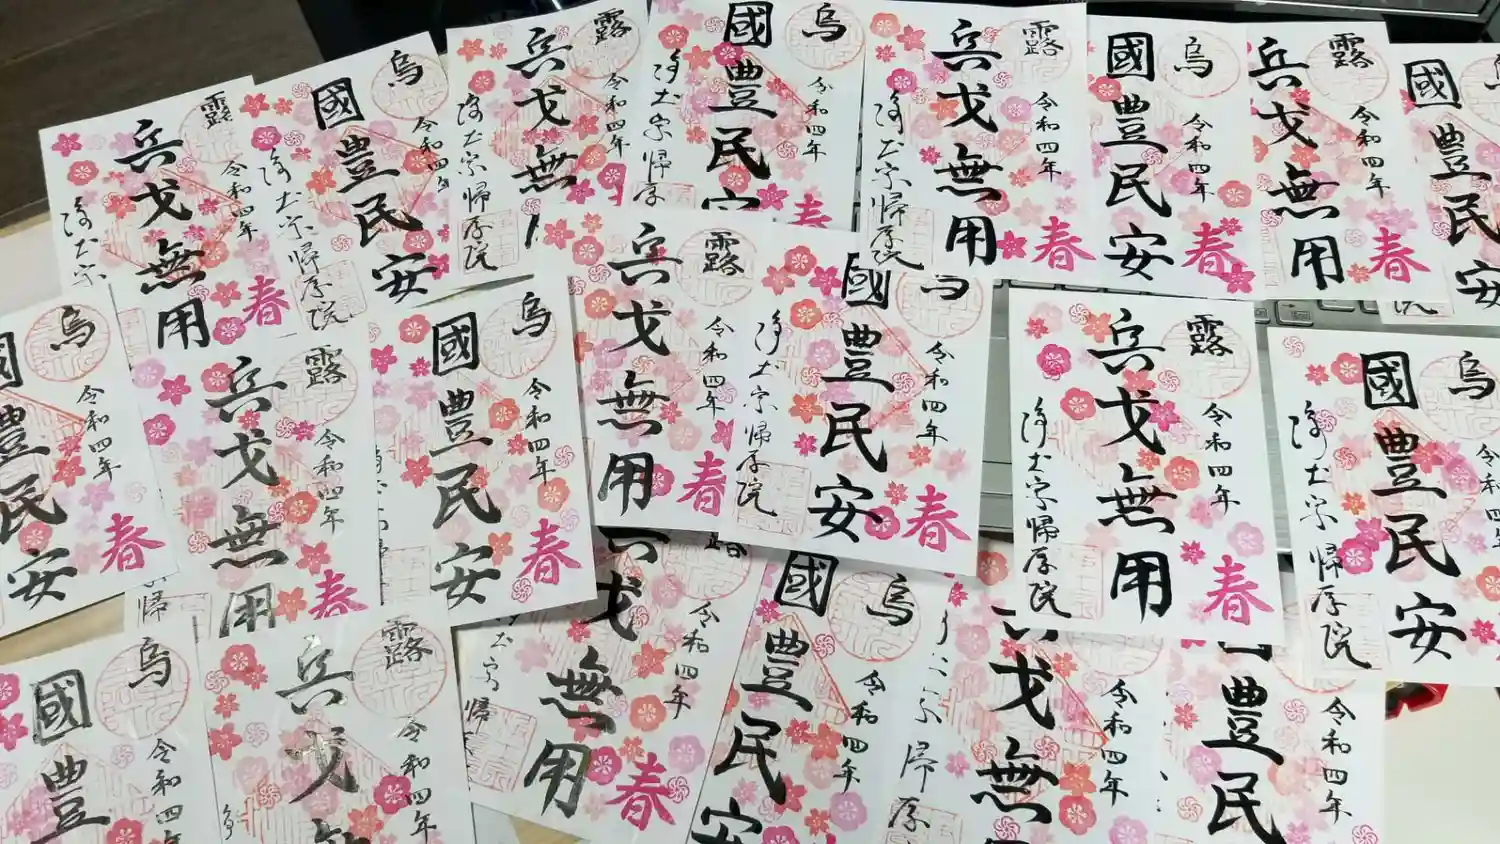 露
令和四年
春
兵戈無用
浄土宗
烏
令和四年
國豊民安
浄土宗帰厚院
露
令和四年
兵戈無
浄土宗帰厚院
烏
令和四年
春
國豊民安
浄土宗帰厚
露
令和四年
春
兵戈無用
浄土宗帰厚院
烏
令和四年
春
國豊民安
露
令和四年
春
兵戈無用
國豊民安
院
烏
令和四年
春
國豊民安
露
令和四年
春
兵戈無用
帰
烏
令和四年
春
國豊民安
露
令和四年
春
兵戈無用
浄土宗帰厚院
烏
令和四年
春
國豊民安
浄土宗帰厚院
露
令和四年
春
兵戈無用
浄土宗帰厚院
烏
令和四
國豊民安
浄土宗帰厚院
烏
令和四年
國豊
露
令和四年
兵戈
令和四年
春
戈無用
土宗帰
烏
令和四年
國豊民安
令和四年
戈無
帰厚
令和四年
豊民